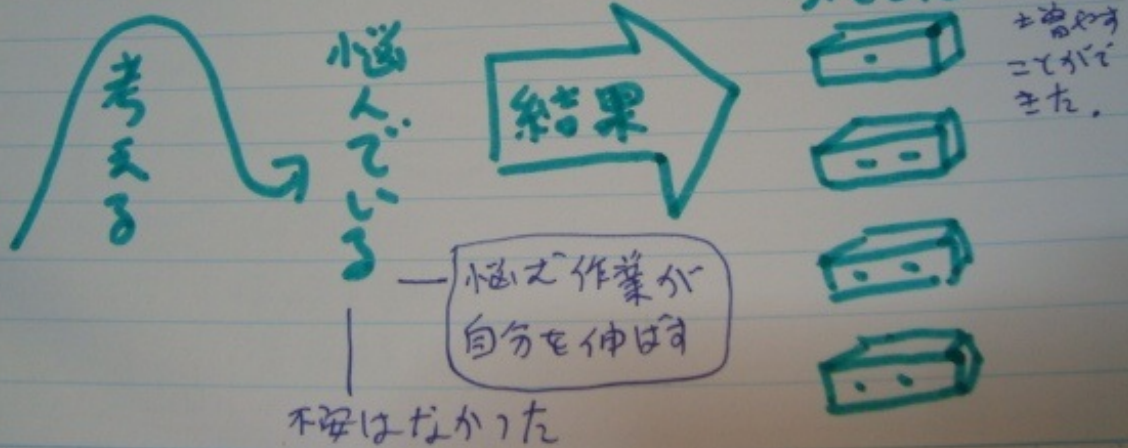 考える
悩んでいる
結果
増やす
ことがで
きた。
悩む作業が
自分を伸ばす
不安はなかった